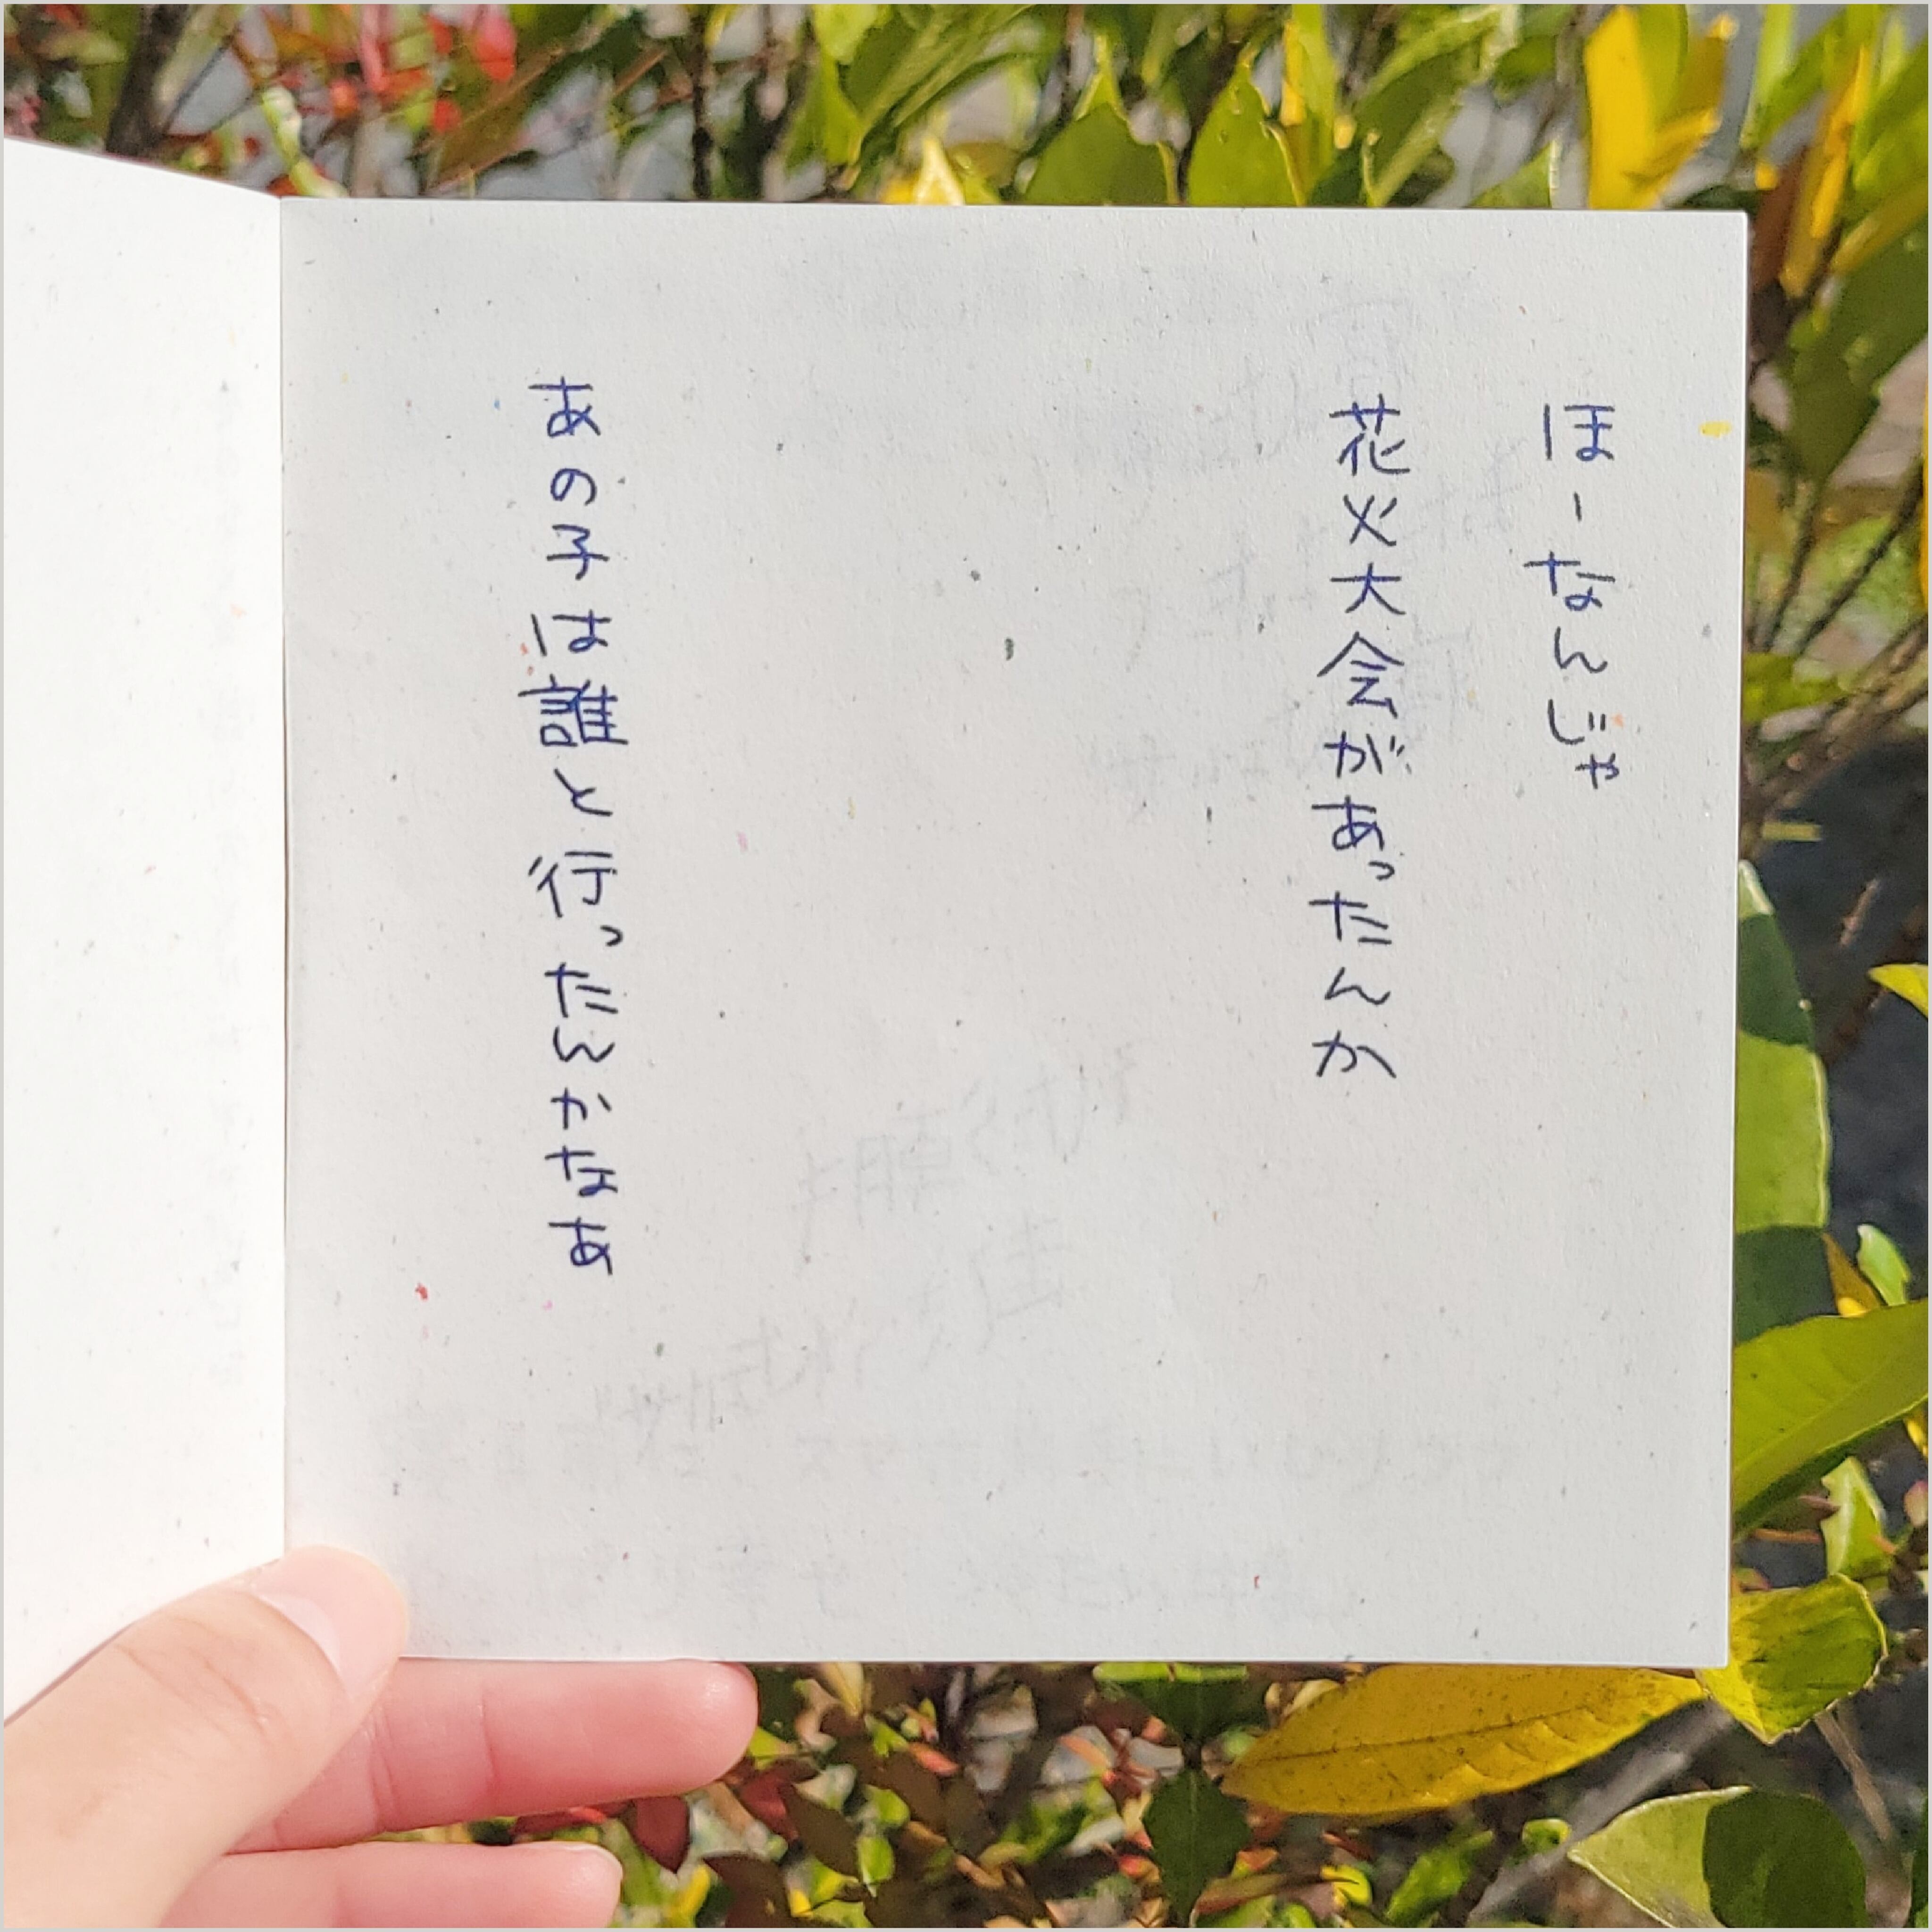 ほーなんじゃ
花火大会があったんか
あの子は誰と行ったんかなあ